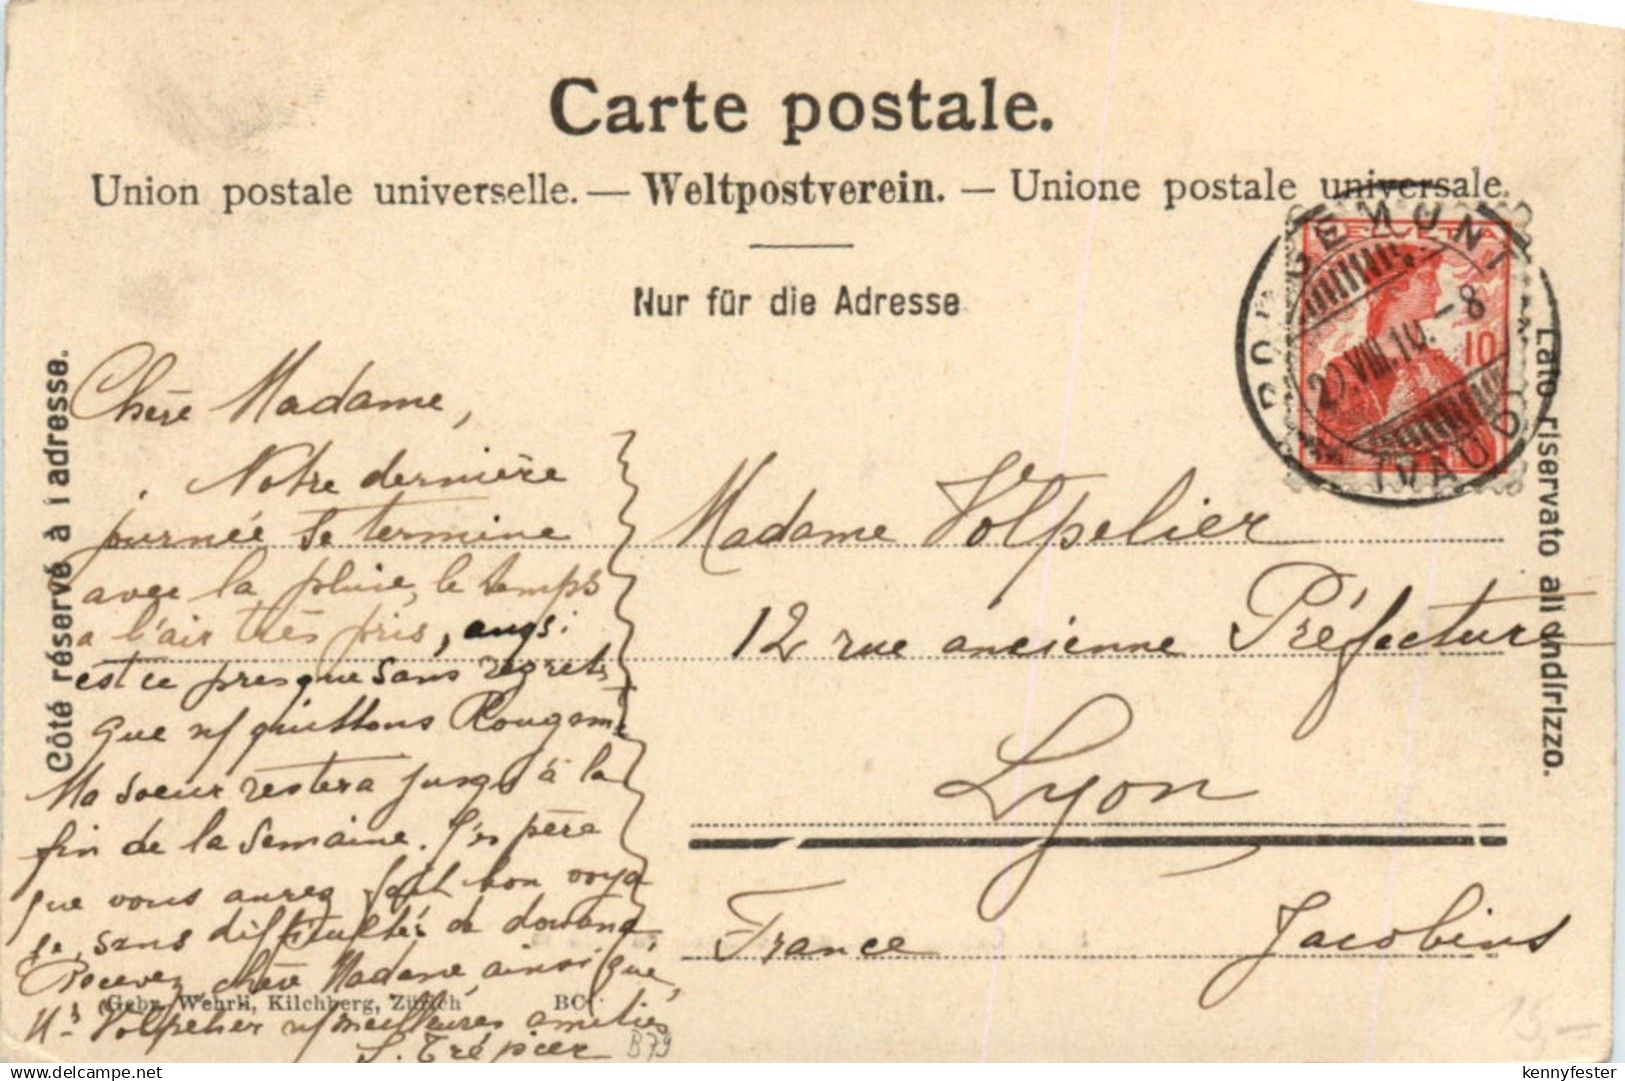 Carte postale.
Union postale universelle. — Weltpostverein. — Unione postale universale.
Nur für die Adresse
Côté réservé à l adresse.
Lato riservato all indirizzo.
HELVETIA
10
ROUGEMONT
VIII.10.-8
(VAUD)
Chère Madame,
Notre dernière
journée se termine
avec la pluie, le temps
a l'air très pris, aussi
est ce presque sans regrets
que n/ quittons Rougemt
Ma soeur restera jusqu'à la
fin de la semaine. J'espère
que vous aurez fait bon voya
ge, sans difficultés de douane,
Recevez, chère Madame, ainsi que
Mr Volpelier n/ meilleures amitiés
S. Trépier
Madame Volpelier
12 rue ancienne Préfecture
Lyon
France Jacobins
Gebr. Wehrli, Kilchberg, Zürich BC
B79
15,-
kennyfester